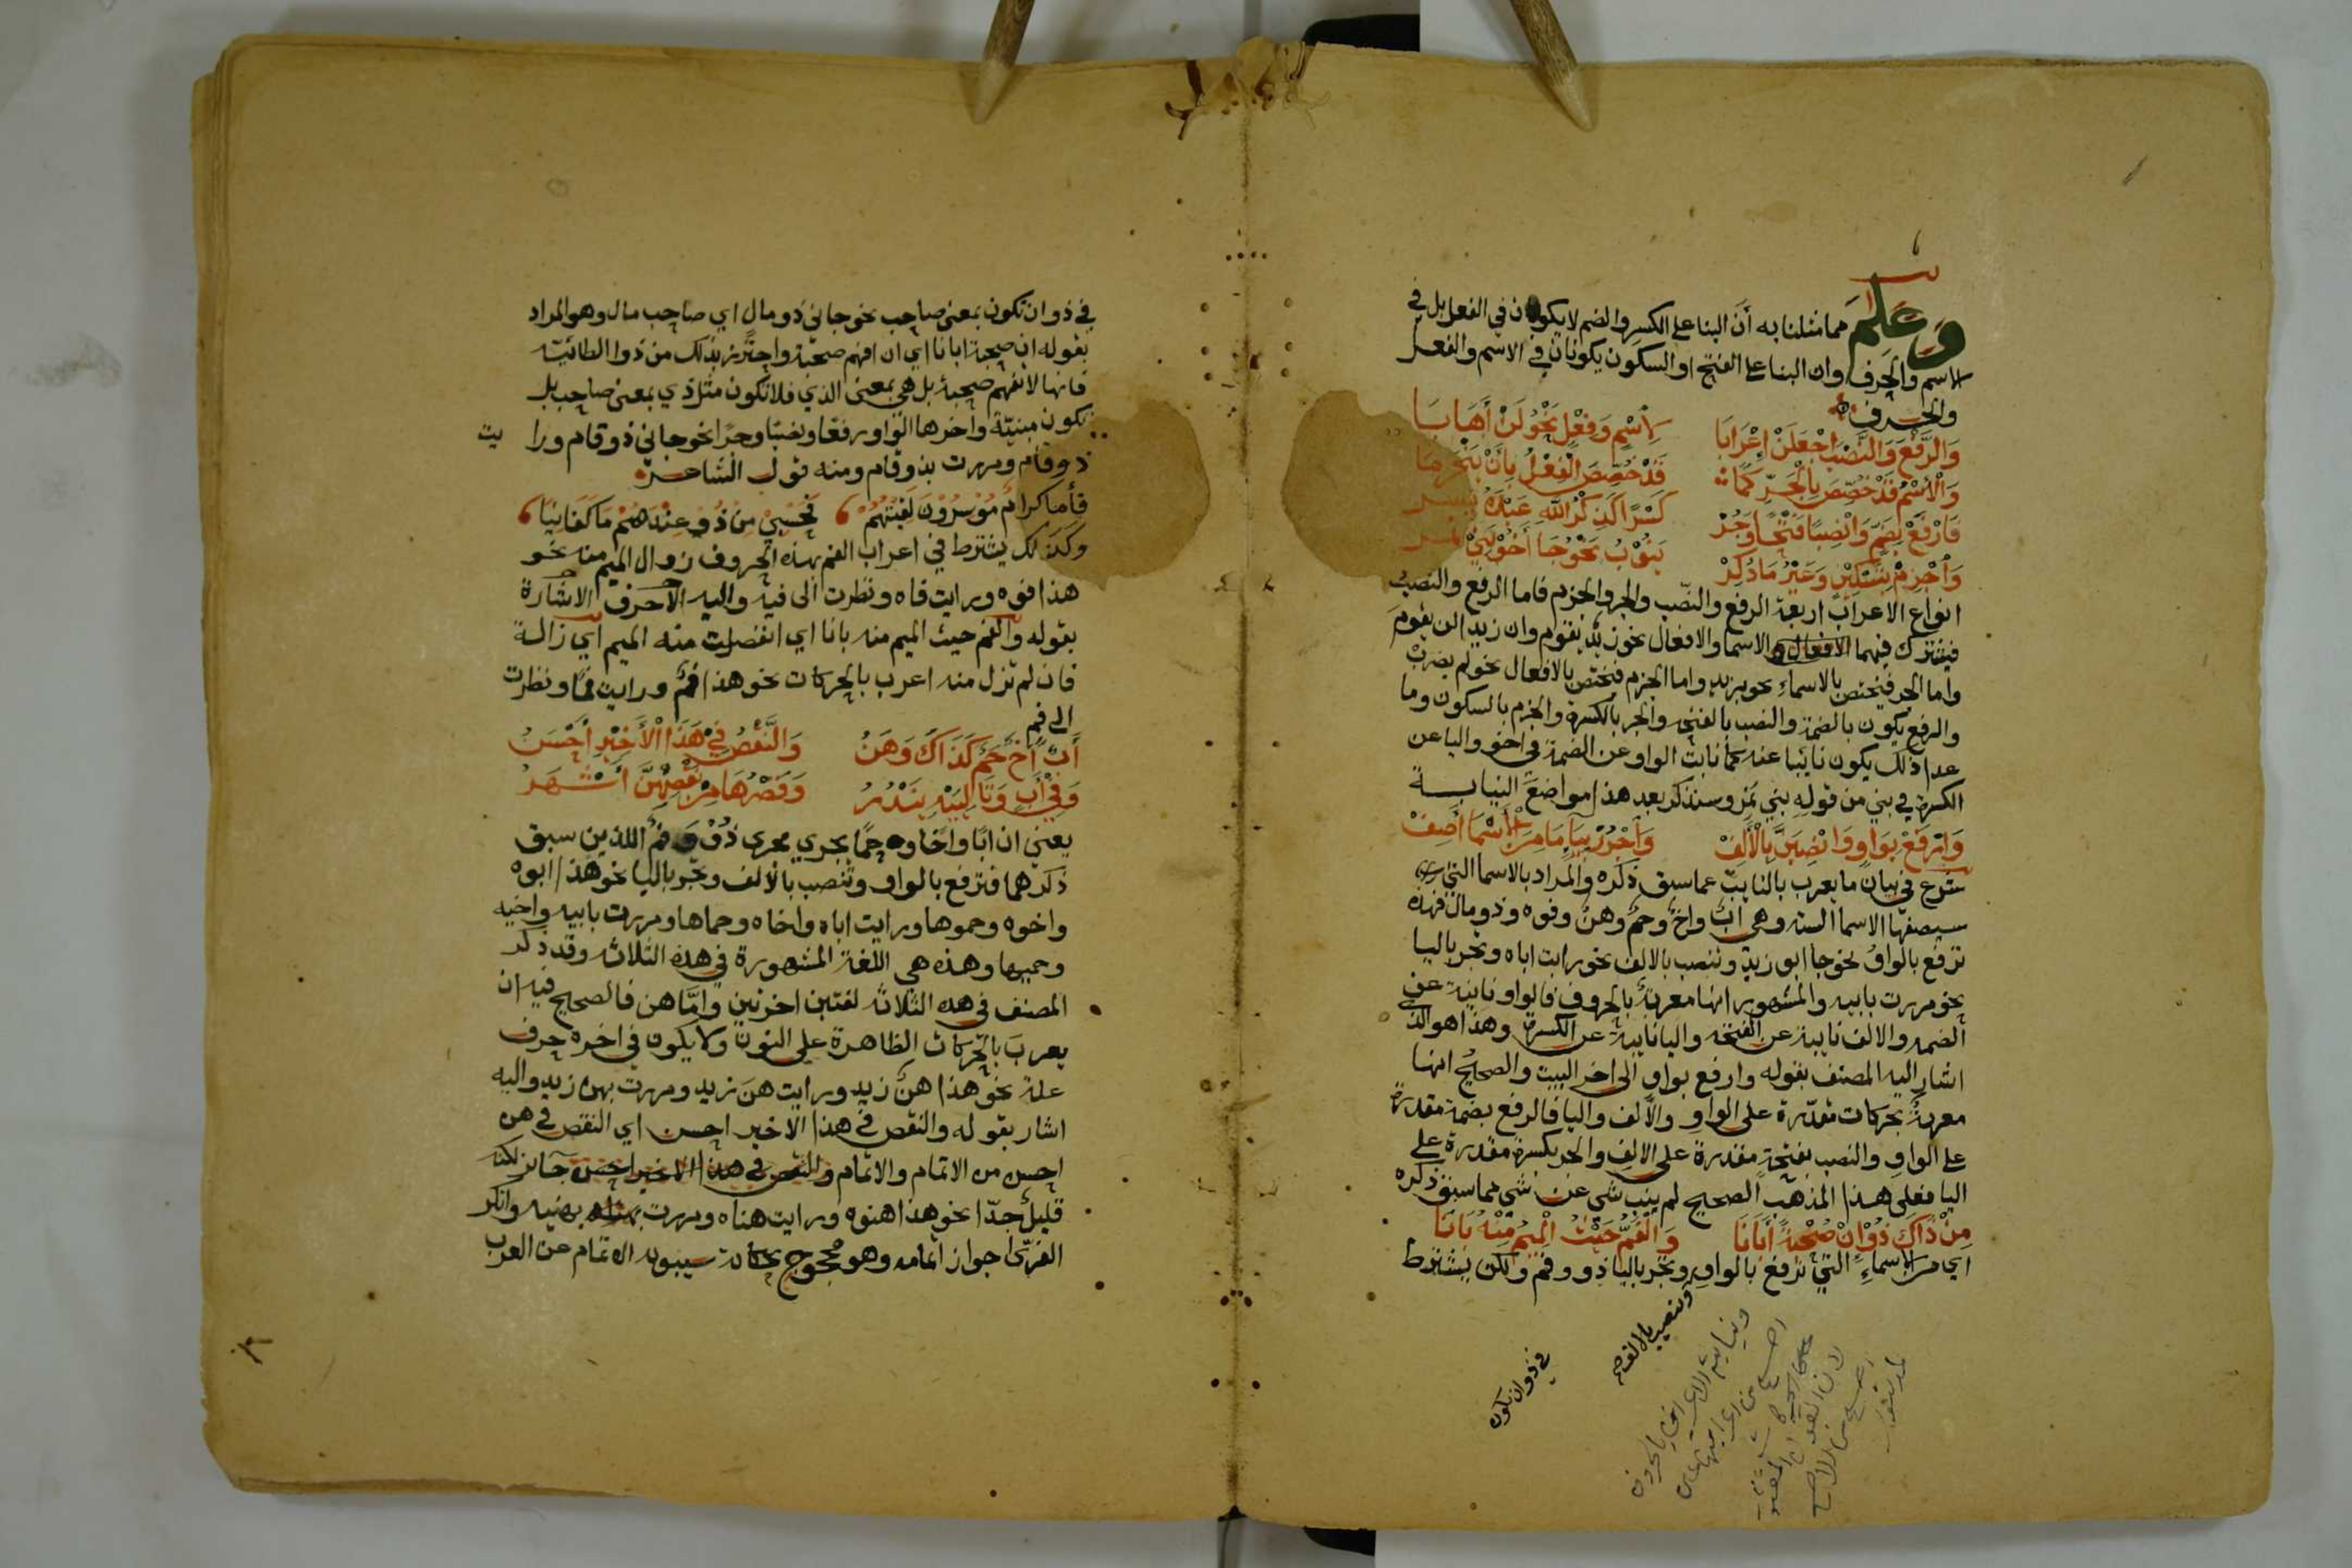 وعلم مما مثلنا به أن البنا على الكسر والضم لا يكونان في الفعل بل في
الاسم والحرف وان البنا على الفتح او السكون يكونان في الاسم والفعل
والحرف
وَالرَّفْعَ وَالنَّصْبَ اجْعَلَنْ إِعْرَابَا لِاسْمٍ وَفِعْلٍ نَحْوُ لَنْ أَهَابَا
وَالْاِسْمُ قَدْ خُصِّصَ بِالْجَرِّ كَمَا قَدْ خُصِّصَ الْفِعْلُ بِأَنْ يَنْجَزِمَا
فَارْفَعْ بِضَمٍّ وَانْصِبًا فَتْحًا وَجُرْ كَسْرًا كَذِكْرُ اللهِ عَبْدَهُ يَسُر
وَاجْزِمْ بِتَسْكِيْنٍ وَغَيْرُ مَا ذُكِرْ يَنُوْبُ نَحْوُ جَا أَخُوْ بَنِيْ نَمِر
انواع الاعراب اربعة الرفع والنصب والجر والجزم فاما الرفع والنصب
فيشترك فيهما الافعال و الاسما والافعال نحو زيد يقوم وان زيدا لن يقوم
واما الجر فيختص بالاسماءِ نحو بزيدٍ واما الجزم فيختص بالافعال نحو لم يضرب
والرفع يكون بالضمة والنصب بالفتحة والجر بالكسرة والجزم بالسكون وما
عدا ذلك يكون نايبا عنه كما نابت الواو عن الضمة في اخو واليا عن
الكسرة في بني من قوله بني نمر وسنذكر بعد هذا مواضع النيابة
وَارْفَعْ بِوَاوٍ وَانْصِبَنَّ بِالْأَلِفْ وَاجْرُرْ بِيَاءٍ مَا مِنَ الْأَسْمَا أَصِفْ
شرع في بيان ما يعرب بالنايب عما سبق ذكره والمراد بالاسما التي
سيصفها الاسما الستة وهي ابٌ واخٌ وحمٌ وهنٌ وفوه وذو مال فهذه
ترفع بالواو نحو جا ابو زيد وتنصب بالالف نحو رايت اباه وتجر باليا
نحو مررت بابيه والمشهور انها معربة بالحروف فالواو نايبة عن
الضمه والالف نايبة عن الفتحه واليا نايبة عن الكسرة وهذا هو الذي
اشار اليه المصنف بقوله وارفع بواو الى اخر البيت والصحيح انها
معربةٌ بحركات مقدّرة على الواوِ والالف واليا فالرفع بضمة مقدرة
على الواو والنصب بفتحةٍ مقدرة على الالف والجر بكسرة مقدرة على
اليا فعلى هذا المذهب الصحيح لم ينب شي عن شي مما سبق ذكره
مِنْ ذَاكَ ذُوْ إِنْ صُحْبَةً أَبَانَا وَالْفَمُّ حَيْثُ الْمِيْمُ مِنْهُ بَانَا
اي من الاسماءِ التي ترفع بالواوِ وتجر باليا ذو وفم ولكن يشترط
وتنصب بالالف صح
في ذو ان تكون
في ذو ان تكون بمعنى صاحب نحو جاني ذو مال اي صاحب مال وهو المراد
بقوله ان صحبة ابانا اي ان افهم صحبة واحترز بذلك من ذو الطائية
فانها لا تفهم صحبة بل هي بمعنى الذي فلا تكون مثل ذي بمعنى صاحب بل
تكون مبنيّة واخرها الواو رفعًا ونصبًا وجرًا نحو جاني ذو قام ورا يت
ذو قام ومررت بذو قام ومنه قول الشاعر
فأما كرامٌ مُوْسِرُوْنَ لَقِيْتُهُمْ فَحَسْبِيْ مِنْ ذُوْ عِنْدَهُمْ مَا كَفَانِيَا
وكذلك يشترط في اعراب الفم بهذه الحروف زوال الميم منه نحو
هذا فوه ورايت فاه ونظرت الى فيه واليه الاشارة
بقوله والفم حيث الميم منه بانا اي انفصلت منه الميم اي زالت
فان لم تزل منه اعرب بالحركات نحو هذا فمٌ ورايت فمًا ونظرت
الى فم
أَبٌ أَخٌ حَمٌ كَذَاكَ وَهَنُ وَالنَّقْصُ فِيْ هَذَا الْأَخِيْرِ أَحْسَنُ
وَفِيْ أَبٍ وَتَالِيَيْهِ يَنْدُرُ وَقَصْرُهَا مِنْ نَقْصِهِنَّ أَشْهَرُ
يعني ان ابًا واخًا وحمًا يجري مجرى ذُوْ وَ فمٌ اللذين سبق
ذكرهما فترفع بالواو وتنصب بالالف وتجر باليا نحو هذا ابوه
واخوه وحموها ورايت اباه واخاه وحماها ومررت بابيه واخيه
وحميها وهذه هي اللغة المشهورة في هذه الثلاثه وقد ذكر
المصنف في هذه الثلاثة لغتين اخرتين وامّا هن فالصحيح فيه ان
يعرب بالحركات الظاهرة على النون ولا يكون في اخره حرف
علة نحو هذا هنُ زيد ورايت هنَ زيد ومررت بهن زيد واليه
اشار بقوله والنقص في هذا الاخير احسن اي النقص في هن
احسن من الاتمام والاتمام والنقص في هذا الاخير احسن جائز لكنه
قليل جدّا نحو هذا هنوه ورايت هناه ومررت بهنيه وانكر
الفرّا جواز اتمامه وهو محجوج بحكاية سيبويه الاتمام عن العرب